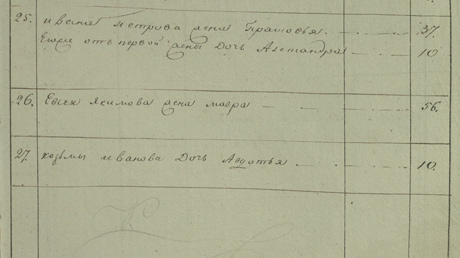 25. Ивана Петрова жена Прасковья 37.
Егоже отъ первой жены Дочь Александра 10
26. Якимова жена Мавра 56.
27. козьмы иванова Дочь Авдотья 10.